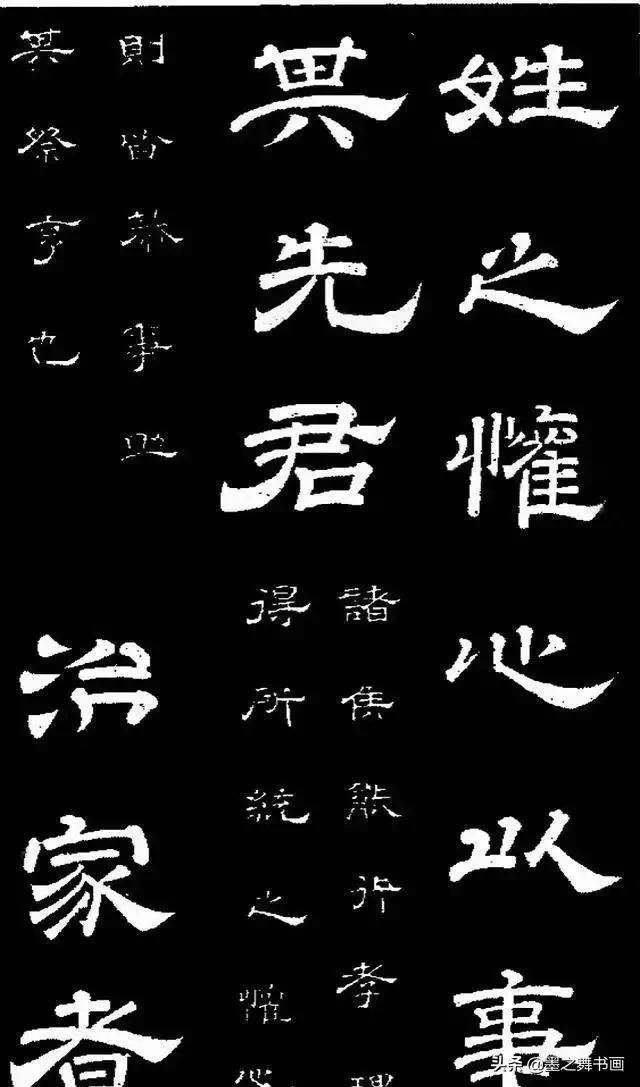 姓之懽心以事
其先君
諸侯能行孝理
得所統之懽心
則皆恭事助
其祭享也
治家者
头条 @墨之舞书画